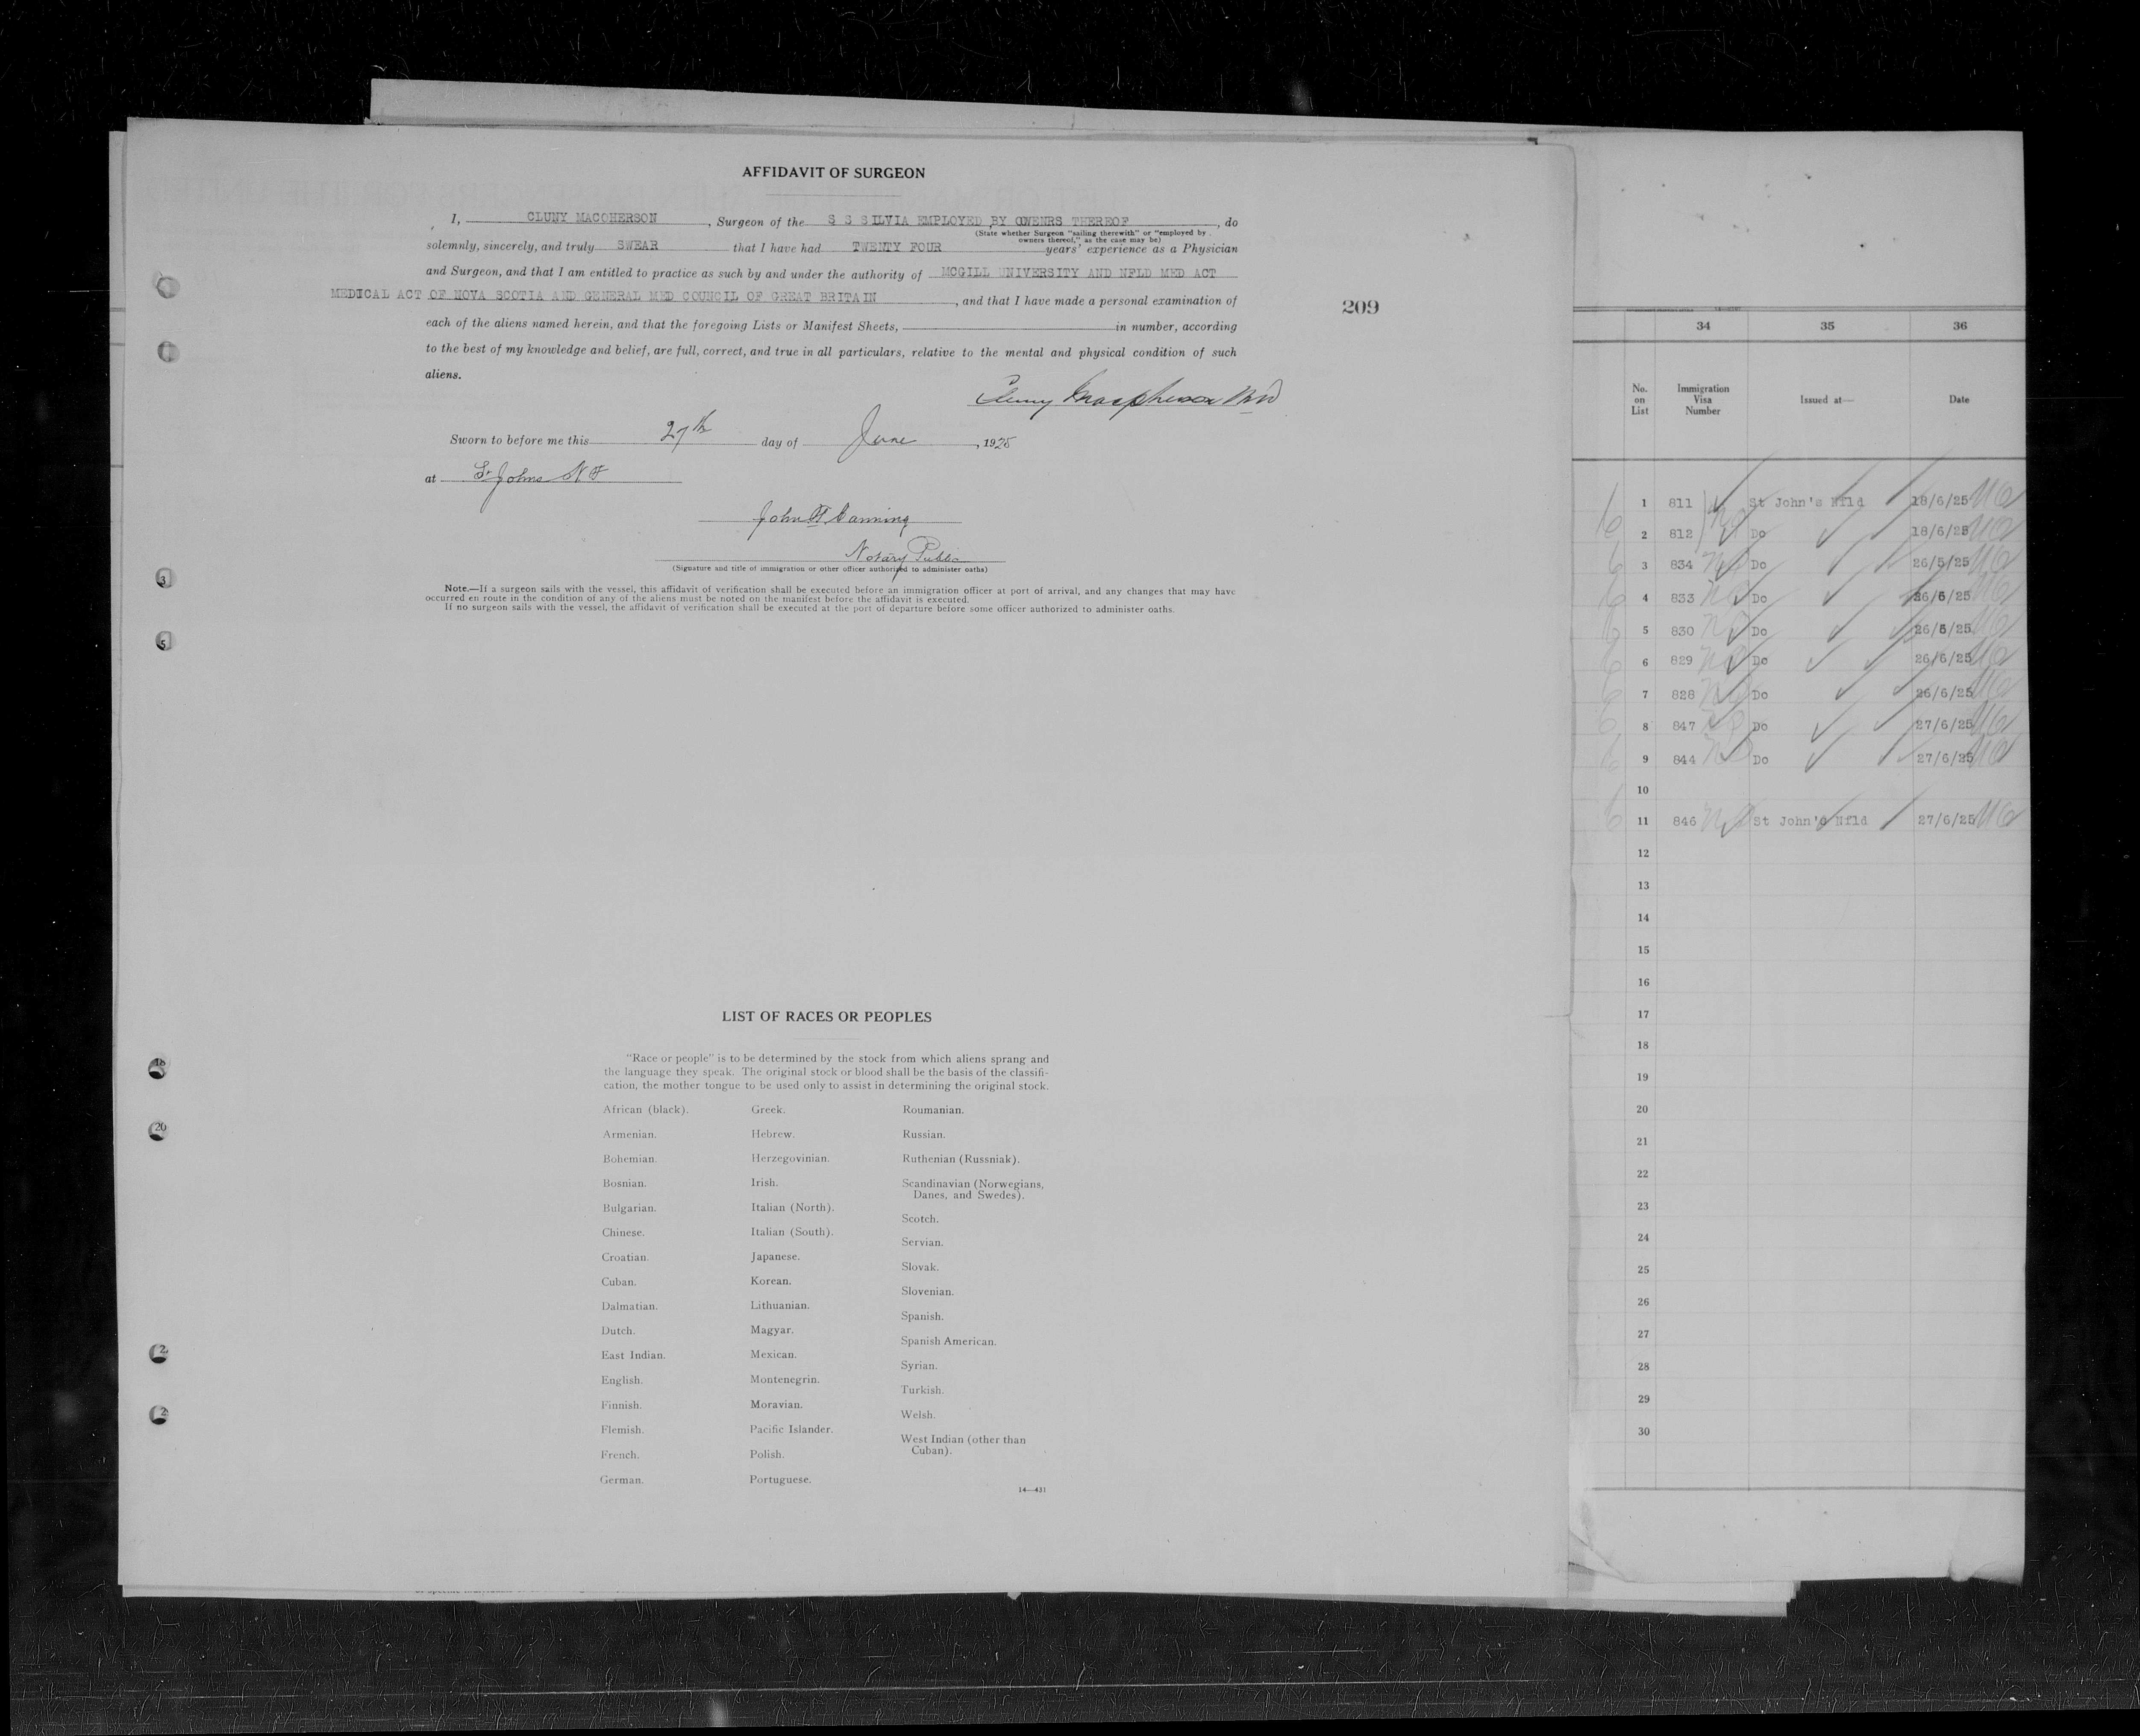 AFFIDAVIT OF SURGEON
I, CLUNY MACOHERSON, Surgeon of the S S SILVIA EMPLOYED BY OWENRS THEREOF, do
(State whether Surgeon "sailing therewith" or "employed by
owners thereof," as the case may be)
solemnly, sincerely, and truly SWEAR that I have had TWENTY FOUR years' experience as a Physician
and Surgeon, and that I am entitled to practice as such by and under the authority of MCGILL UNIVERSITY AND NFLD MED ACT
MEDICAL ACT OF NOVA SCOTIA AND GENERAL MED COUNCIL OF GREAT BRITAIN, and that I have made a personal examination of
209
each of the aliens named herein, and that the foregoing Lists or Manifest Sheets, in number, according
to the best of my knowledge and belief, are full, correct, and true in all particulars, relative to the mental and physical condition of such
aliens.
Cluny Macpherson MD
Sworn to before me this 27th day of June, 1925
at St Johns NF
John Canning
Notary Public
(Signature and title of immigration or other officer authorized to administer oaths)
Note.—If a surgeon sails with the vessel, this affidavit of verification shall be executed before an immigration officer at port of arrival, and any changes that may have
occurred en route in the condition of any of the aliens must be noted on the manifest before the affidavit is executed.
If no surgeon sails with the vessel, the affidavit of verification shall be executed at the port of departure before some officer authorized to administer oaths.
LIST OF RACES OR PEOPLES
"Race or people" is to be determined by the stock from which aliens sprang and
the language they speak. The original stock or blood shall be the basis of the classifi-
cation, the mother tongue to be used only to assist in determining the original stock.
African (black).
Armenian.
Bohemian.
Bosnian.
Bulgarian.
Chinese.
Croatian.
Cuban.
Dalmatian.
Dutch.
East Indian.
English.
Finnish.
Flemish.
French.
German.
Greek.
Hebrew.
Herzegovinian.
Irish.
Italian (North).
Italian (South).
Japanese.
Korean.
Lithuanian.
Magyar.
Mexican.
Montenegrin.
Moravian.
Pacific Islander.
Polish.
Portuguese.
Roumanian.
Russian.
Ruthenian (Russniak).
Scandinavian (Norwegians,
Danes, and Swedes).
Scotch.
Servian.
Slovak.
Slovenian.
Spanish.
Spanish American.
Syrian.
Turkish.
Welsh.
West Indian (other than
Cuban).
14—431
34 35 36
No.
on
List
Immigration
Visa
Number
Issued at—
Date
1 811 St John's Nfld 18/6/25
2 812 Do 18/6/25
3 834 Do 26/5/25
4 833 Do 26/6/25
5 830 Do 26/6/25
6 829 Do 26/6/25
7 828 Do 26/6/25
8 847 Do 27/6/25
9 844 Do 27/6/25
10
11 846 St John's Nfld 27/6/25
12
13
14
15
16
17
18
19
20
21
22
23
24
25
26
27
28
29
30